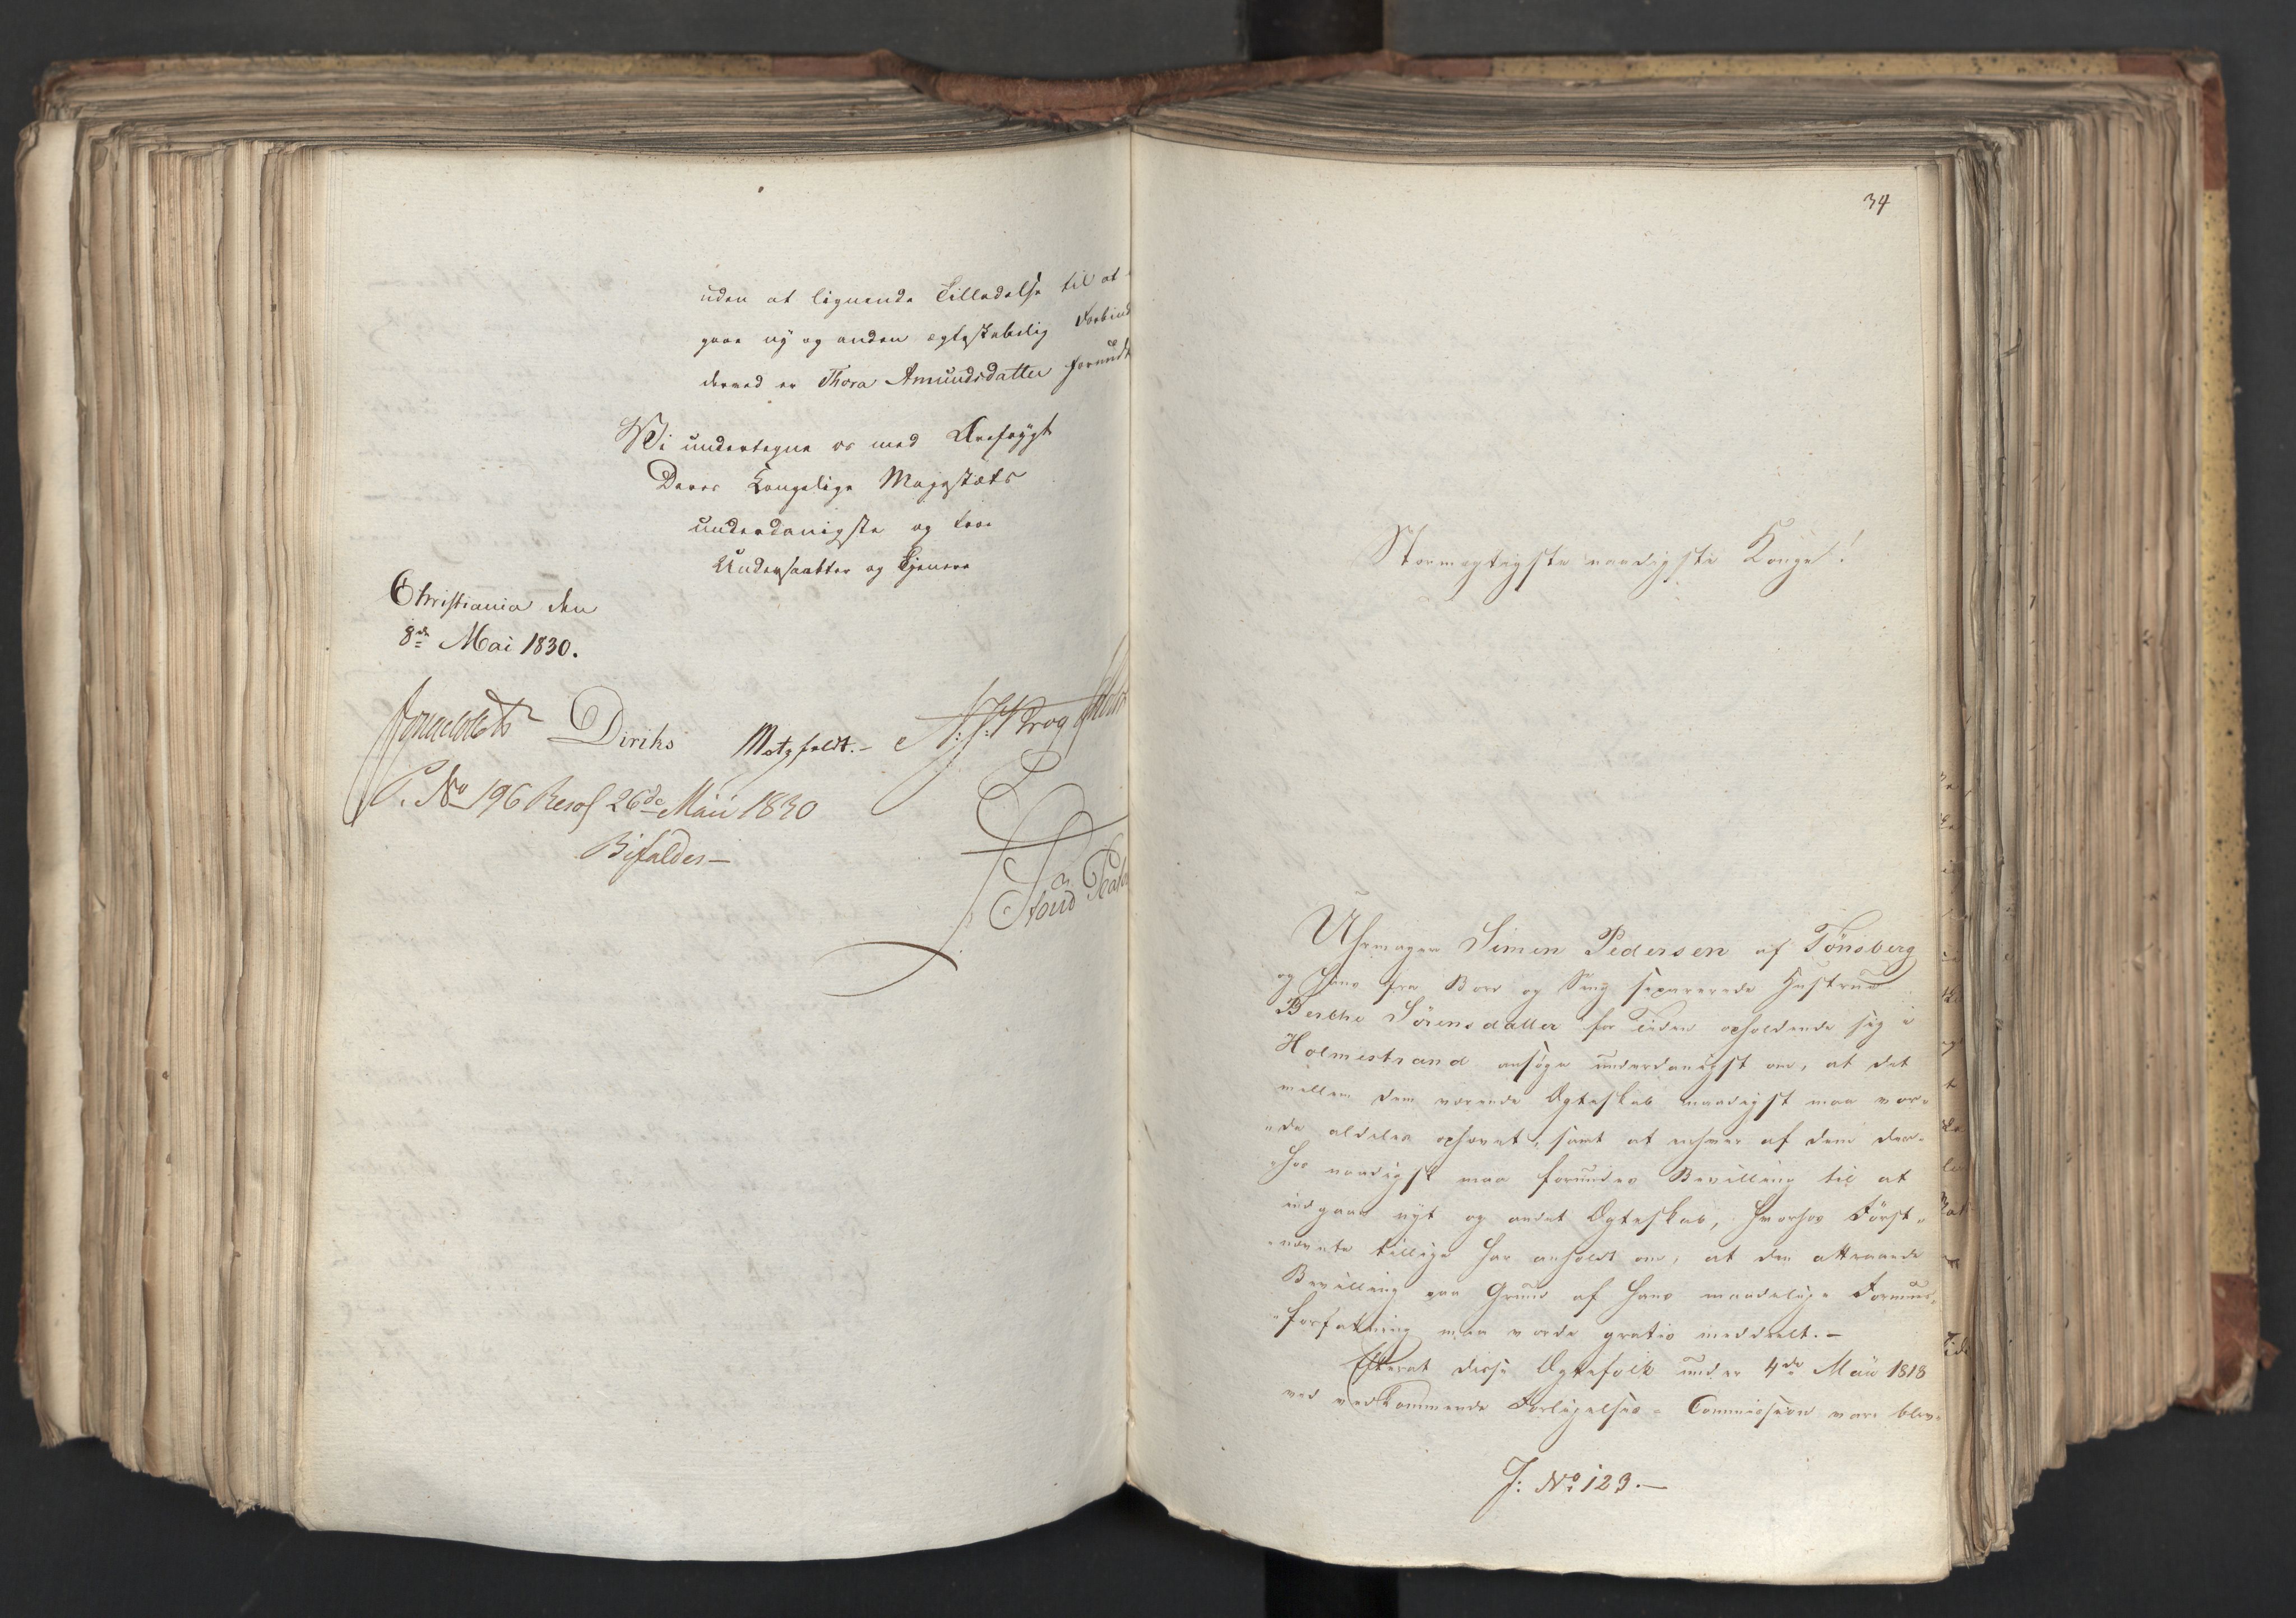 uden at lignende Tilladelse til at
gaae ny og anden ægteskabelig Forbind
dermed er Thora Amundsdatter forundt
Vi undertegne os med Ærefrygt
Deres Kongelige Majestæts
underdanigste og troe
Undersaatter og Tjenere
Christiania den
8de Mai 1830.
Diriks Motzfeldt.- Krog
P. No 196 Resol 26de Maii 1830
Bifaldes-
34
Stormægtigste naadigste Konge!
Uhrmager Simen Pedersen af Tönsberg
og hans fra Bord og Seng separerede Hustrue
Berthe Sörensdatter for Tiden opholdende sig i
Holmestrand ansöge underdanigst om, at det
mellem dem værende Ægteskab naadigst maa vor-
"de aldeles ophævet, samt at enhver af dem der-
"hos naadigst maa forundes Bevilling til at
indgaae nyt og andet Ægteskab, hvorhos Först-
"nævnte tillige har anholdt om, at den attraaede
Bevilling paa Grund af hans maadelige Formues-
"forfatning maa vorde gratis meddeelt.-
Efterat disse Ægtefolk under 4de Maii 1818
ved vedkommende Forligelses-Commission vare blev-
J: No 123.-